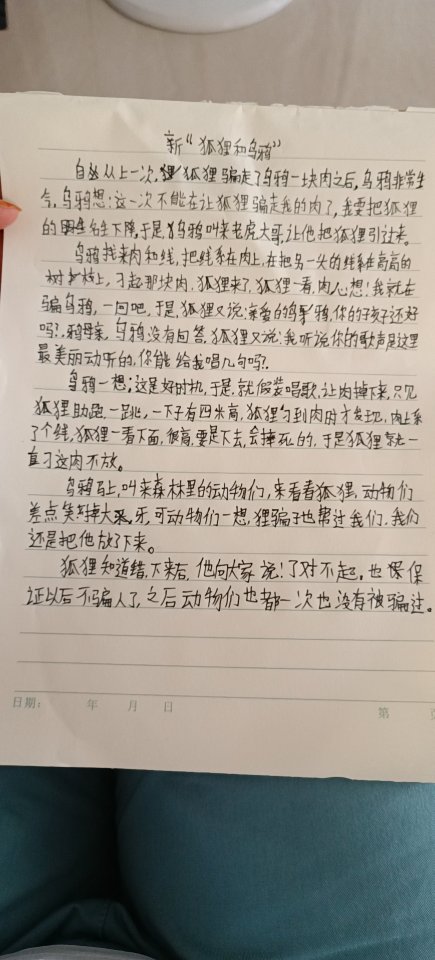 新“狐狸和乌鸦”
自从从上一次,狐狸骗走了乌鸦一块肉之后,乌鸦非常生
气,乌鸦想:这一次不能在让狐狸骗走我的肉了,我要把狐狸
的名生下降,于是,乌鸦叫来老虎大哥,让他把狐狸引过来。
乌鸦找来肉和线,把线系在肉上,在把另一头的线系在高高的
树杈上,刁起那块肉,狐狸来了,狐狸一看,肉心想!我就在
骗乌鸦,一回吧,于是,狐狸又说:亲爱的乌鸦,你的孩子还好
吗?,乌鸦没有回答,狐狸又说:我听说你的歌声是这里
最美丽动听的,你能给我唱几句吗?
乌鸦一想;这是好时机,于是,就假装唱歌,让肉掉下来,只见
狐狸助跑一跳,一下子有四米高,狐狸刁到肉时才发现,肉上系
了个线,狐狸一看下面,很高,要是下去,会摔死的,于是狐狸就一
直刁这肉不放。
乌鸦马上,叫来森林里的动物们,来看看狐狸,动物们
差点笑掉大牙,可动物们一想,狸骗子也帮过我们,我们
还是把他放了下来。
狐狸知道错,下来后,他向大家说!了对不起,也保保
证以后不骗人了,之后动物们也都一次也没有被骗过。
日期: 年 月 日
第